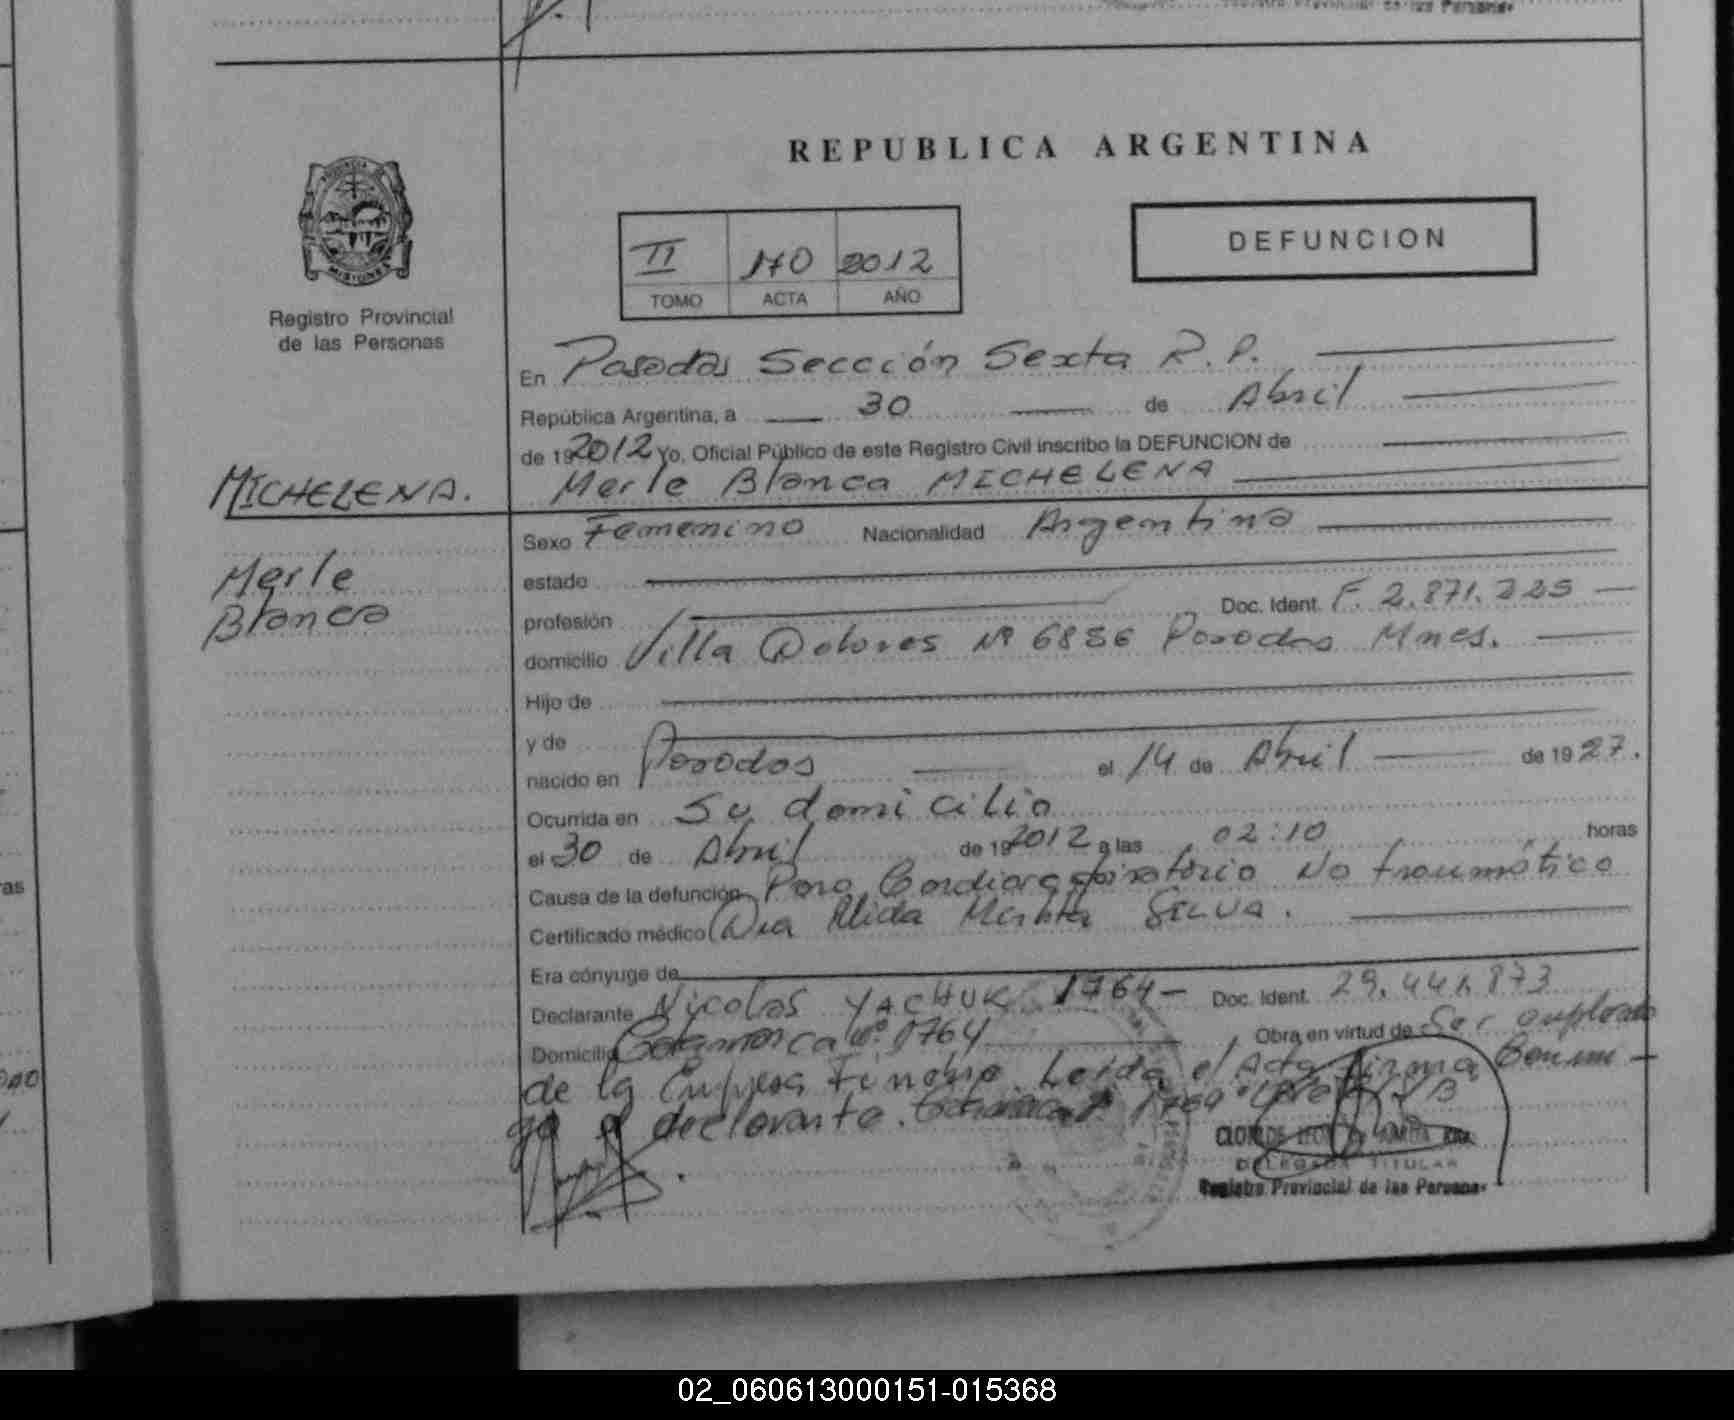 Registro Provincial de las Personas
REPUBLICA ARGENTINA
PROVINCIA DE
MISIONES
Registro Provincial
de las Personas
II 170 2012
TOMO ACTA AÑO
DEFUNCION
En Posadas Sección Sexta R.P.
República Argentina, a 30 de Abril
de 19 2012 Yo, Oficial Público de este Registro Civil inscribo la DEFUNCION de
MICHELENA.
Merle Blanca MICHELENA
Merle
Blanca
Sexo Femenino Nacionalidad Argentina
estado
profesión Doc. Ident. F. 2.871.225
domicilio Villa Dolores Nº 6886 Posadas Mnes.
Hijo de
y de
nacido en Posadas el 14 de Abril de 19 27.
Ocurrida en Su domicilio
el 30 de Abril de 19 2012 a las 02:10 horas
Causa de la defunción Paro Cardiorespiratorio No traumático
Certificado médico Dra Alida Martha SILVA.
Era cónyuge de
Declarante Nicolas YACHUK 1764- Doc. Ident. 29.441.873
Domicilio Catamarca Nº 1764 Obra en virtud de Ser empleado
de la Empresa Fúnebre Leida el Acta firma Conmi-
go el declarante. 1764
DELEGADA TITULAR
Registro Provincial de las Personas
02_060613000151-015368